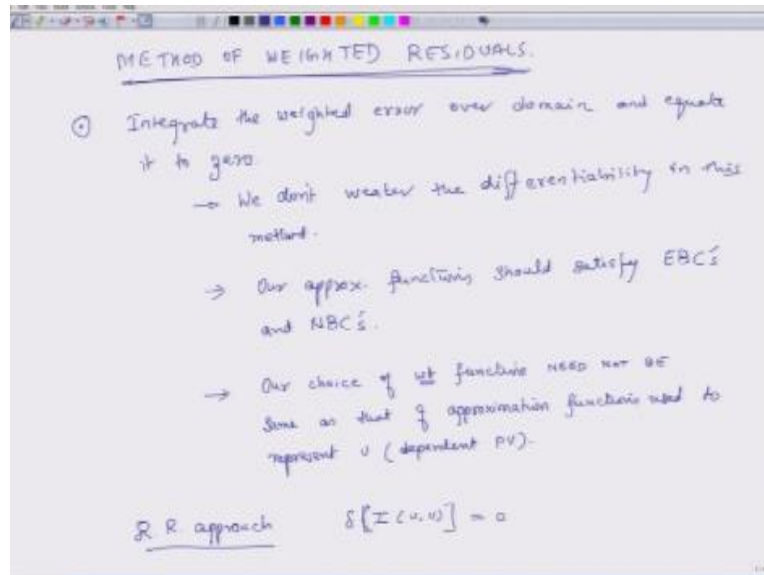 METHOD OF WEIGHTED RESIDUALS.
⊙ Integrate the weighted error over domain and equate
it to zero.
→ We don't weaken the differentiability in this
method.
→ Our approx. functions should satisfy EBC's
and NBC's.
→ Our choice of wt functions NEED NOT BE
same as that of approximation functions used to
represent u (dependent PV).
R.R. approach δ[I(u,u)] = 0